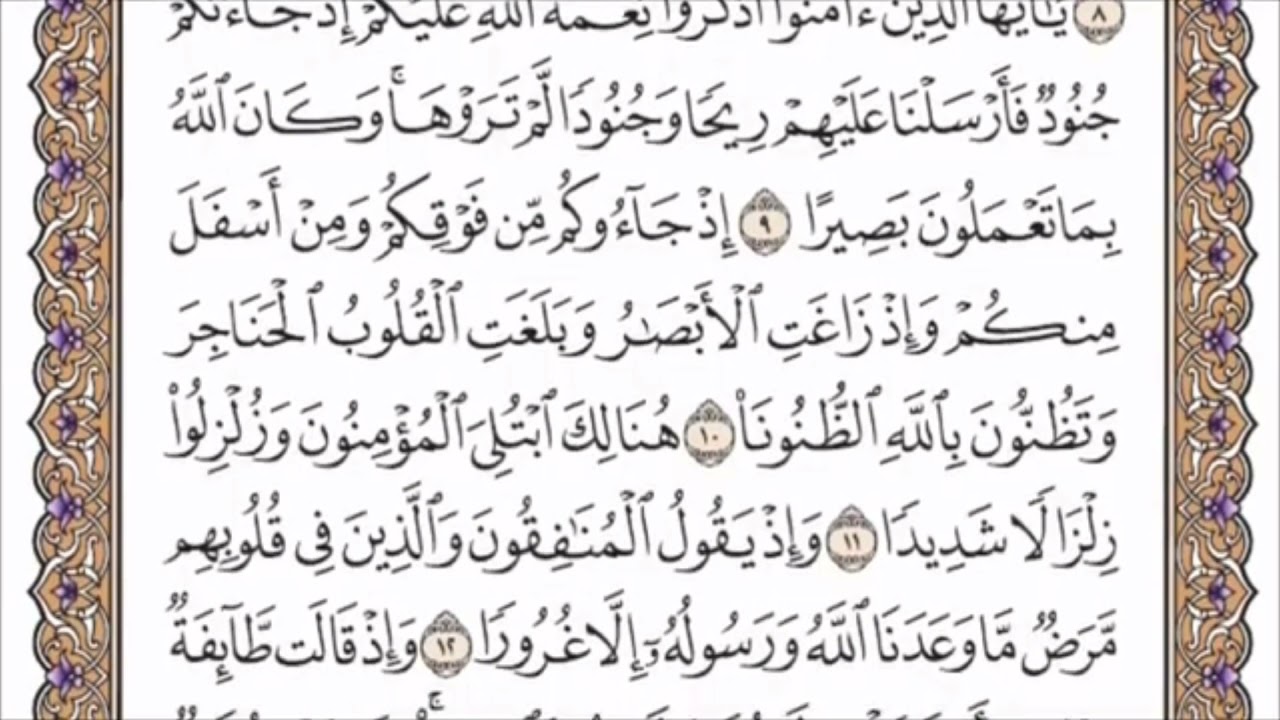 ٨ يَٰٓأَيُّهَا ٱلَّذِينَ ءَامَنُوا۟ ٱذْكُرُوا۟ نِعْمَةَ ٱللَّهِ عَلَيْكُمْ إِذْ جَآءَتْكُمْ
جُنُودٌ فَأَرْسَلْنَا عَلَيْهِمْ رِيحًا وَجُنُودًا لَّمْ تَرَوْهَا ۚ وَكَانَ ٱللَّهُ
بِمَا تَعْمَلُونَ بَصِيرًا ٩ إِذْ جَآءُوكُم مِّن فَوْقِكُمْ وَمِنْ أَسْفَلَ
مِنكُمْ وَإِذْ زَاغَتِ ٱلْأَبْصَٰرُ وَبَلَغَتِ ٱلْقُلُوبُ ٱلْحَنَاجِرَ
وَتَظُنُّونَ بِٱللَّهِ ٱلظُّنُونَا۠ ١٠ هُنَالِكَ ٱبْتُلِىَ ٱلْمُؤْمِنُونَ وَزُلْزِلُوا۟
زِلْزَالًا شَدِيدًا ١١ وَإِذْ يَقُولُ ٱلْمُنَٰفِقُونَ وَٱلَّذِينَ فِى قُلُوبِهِم
مَّرَضٌ مَّا وَعَدَنَا ٱللَّهُ وَرَسُولُهُۥٓ إِلَّا غُرُورًا ١٢ وَإِذْ قَالَت طَّآئِفَةٌ